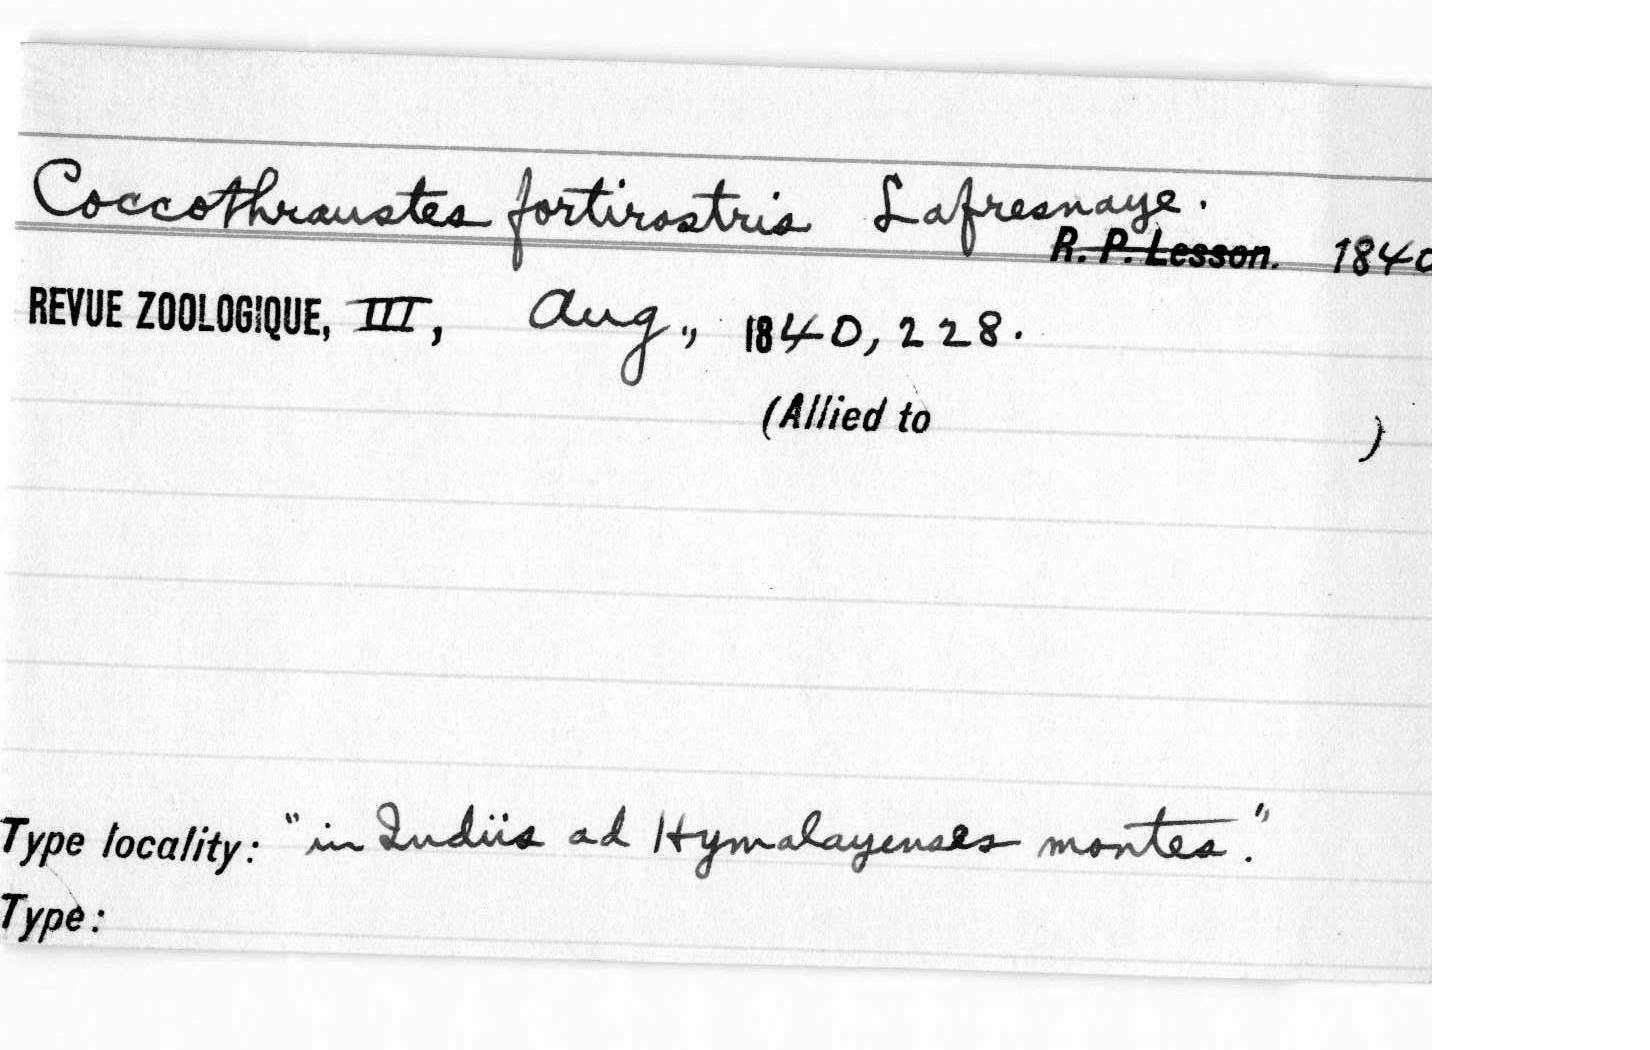 Coccothraustes fortirostris Lafresnaye.
R. P. Lesson. 1840
REVUE ZOOLOGIQUE, III, Aug., 1840, 228.
(Allied to )
Type locality: "in Indiis ad Hymalayenses montes."
Type: